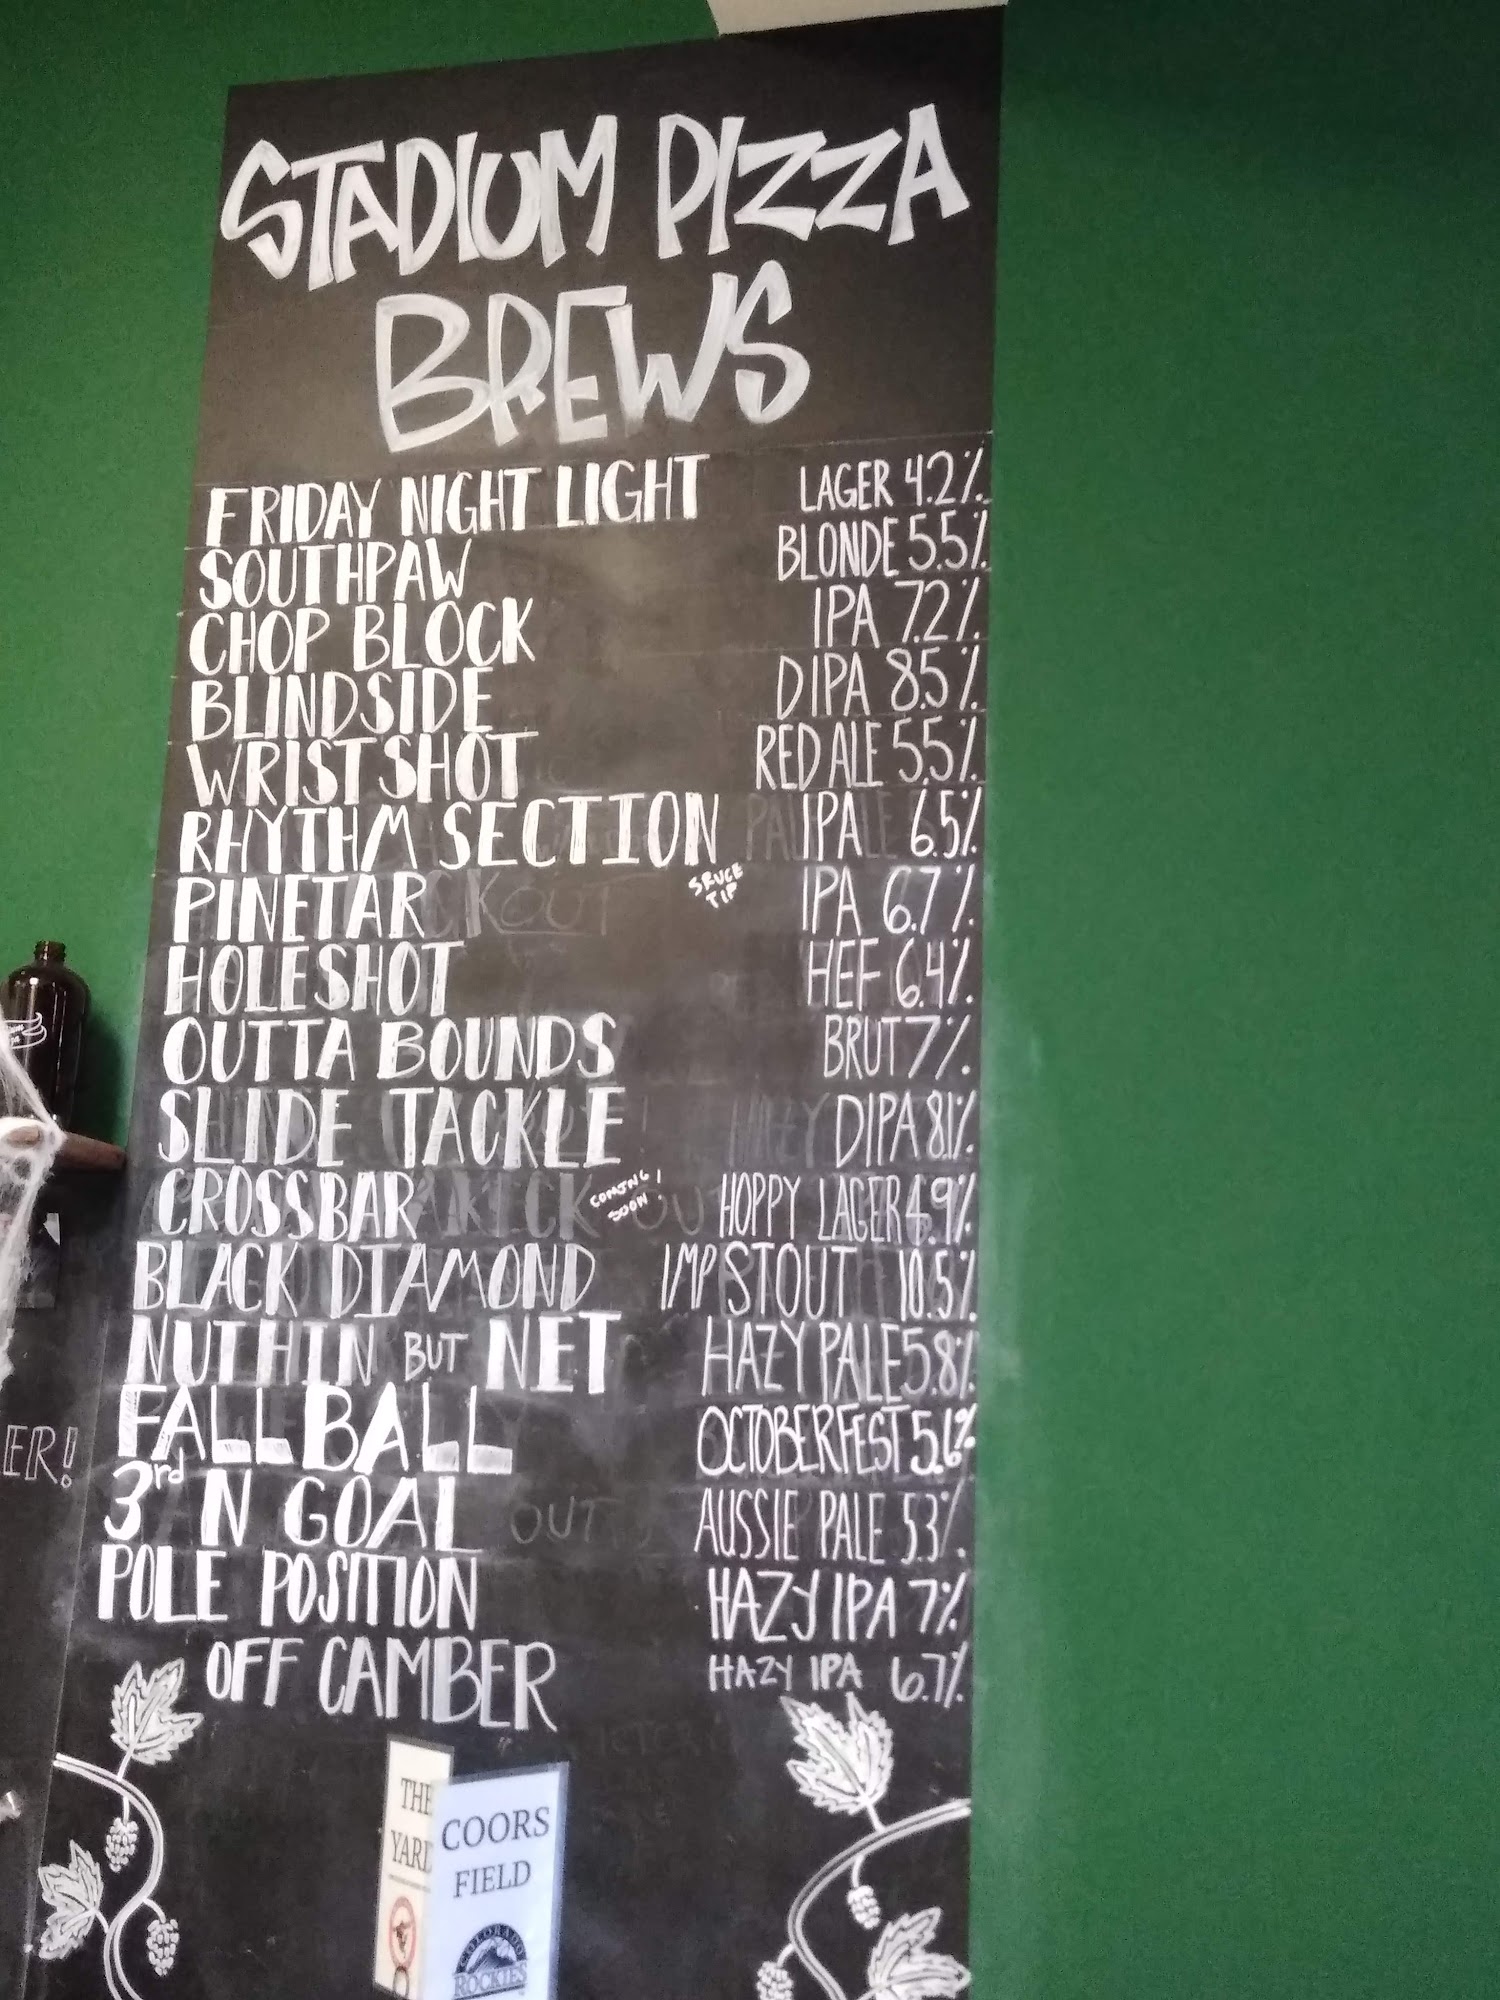 STADIUM PIZZA
BREWS
FRIDAY NIGHT LIGHT LAGER 4.2%
SOUTHPAW BLONDE 5.5%
CHOP BLOCK IPA 7.2%
BLINDSIDE DIPA 8.5%
WRISTSHOT RED ALE 5.5%
RHYTHM SECTION IPA 6.5%
PINETAR SRUCE TIP IPA 6.7%
HOLESHOT HEF 6.4%
OUTTA BOUNDS BRUT 7%
SLIDE TACKLE DIPA 8.1%
CROSSBAR COMING SOON! HOPPY LAGER 4.9%
BLACK DIAMOND IMP STOUT 10.5%
NUTHIN BUT NET HAZY PALE 5.8%
FALL BALL OCTOBERFEST 5.6%
3rd N GOAL AUSSIE PALE 5.3%
POLE POSITION HAZY IPA 7%
OFF CAMBER HAZY IPA 6.7%
ER!
THE
YARD
COORS
FIELD
COLORADO
ROCKIES